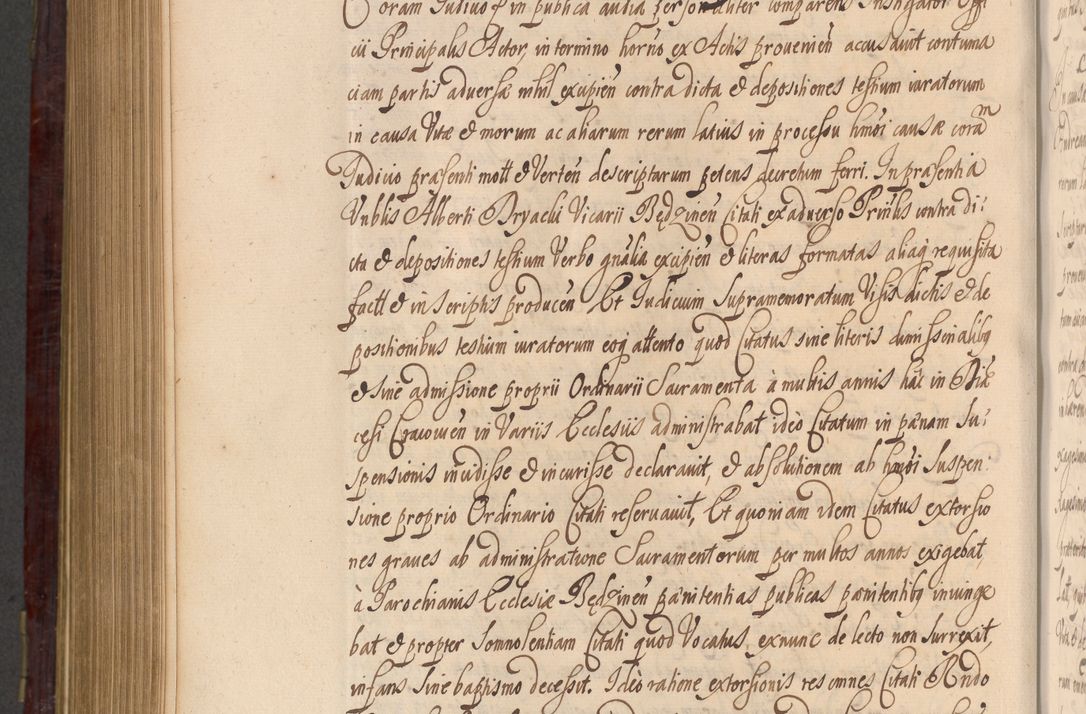 Coram Judicio et in publica audia personaliter comparens Instigator Offi
cii Principalis Actor, in termino horno ex Actis provenien accusavit contuma
ciam partis adversæ nihil excipien contra dicta & depositiones testium iuratorum
in causa Vitæ & morum ac aliarum rerum latius in processu hmoi causæ coram
Judicio præsenti mott & Verten descriptarum petens decretum ferri. In præsentia
Vnblis Alberti Bryacki Vicarii Będzinen Citati ex adverso Prinlis contra di:
cta & depositiones testium Verbo gnalia excipien & literas formatas aliaq requisita
factt & in scriptis producen Et Judicium supramemoratum Visis dictis & de
positionibus testium iuratorum eoq attento quod Citatus sine literis dimissorialibq
& sine admissione proprii Ordinarii Sacramenta à multis annis hac in Diæ
cesi Cracovien in Variis Ecclesiis administrabat ideo Citatum in pænam Su:
spensionis incidisse & incurisse declaravit, & absolutionem ab hmoi suspen:
sione proprio Ordinario Citati reservavit, Et quoniam idem Citatus extorsio
nes graves ab administratione Sacramentorum per multos annos exigebat,
à Parochianis Ecclesiæ Będzinen pænitentias publicas pænitentibq iniunge
bat & propter somnolentiam Citati quod Vocatus exnunc de lecto non surrexit,
infans sine baptismo decessit. Ideo ratione extorsionis res omnes Citati Rndo